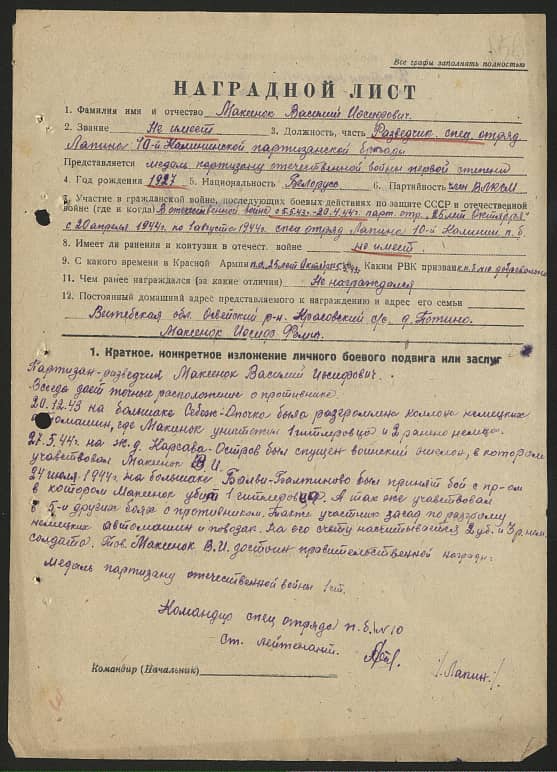 Все графы заполнять полностью
НАГРАДНОЙ ЛИСТ
1. Фамилия имя и отчество Максенок Василий Иосифович.
2. Звание Не имеет 3. Должность, часть Разведчик спец. отряд
Лапино 10-й Калининской партизанской бригады
Представляется медаль партизану отечественной войны первой степени
4. Год рождения 1927 5. Национальность Белорус 6. Партийность член ВЛКСМ
7. Участие в гражданской войне, последующих боевых действиях по защите СССР и отечественной
войне (где и когда) В отечественной войне с 5.5.43 - 20.4.44г. парт. отр. "25 лет Октября"
с 20 апреля 1944г. по 1 августа 1944г. спец отряд Лапино 10-й Калинин. п.б.
8. Имеет ли ранения и контузии в отечест. войне не имеет.
9. С какого времени в Красной Армии п.о. 25 лет Октября Каким РВК призван добровольно
11. Чем ранее награждался (за какие отличия) Не награждался
12. Постоянный домашний адрес представляемого к награждению и адрес его семьи
Витебская обл. Освейский р-н. с/с. д.
Максенок Иосиф
1. Краткое, конкретное изложение личного боевого подвига или заслуг
Партизан-разведчик Максенок Василий Иосифович.
Всегда дает точные расположение о противнике.
20.12.43 на большаке Себеж-Опочко была разгромлена колона немецких
автомашин, где Макинок уништожил 1 гитлеровца и 2 ранено немца.
27.5.44г. на ж.д. Карсава-Остров был спущен воинский эшелон, в котором
учавствовал Макенок В.И.
24 июля 1944г. на большаке Балви-Балтиново был принят бой с пр-ом
в котором Максенок убит 1 гитлеровца. А так же учавствовал
в 5-и других боях с противником. Также участник засад по разгрому
немецких автомашин и повозак. На его счету насчитывается 2 уб. и 3 р. нем.
солдата. Тов. Максенок В.И. достоин правительственной награды:
медаль партизану отечественной войны 1 ст.
Командир спец отряда п.б. №10
ст. лейтенант.
/Лапин./
Командир (Начальник)